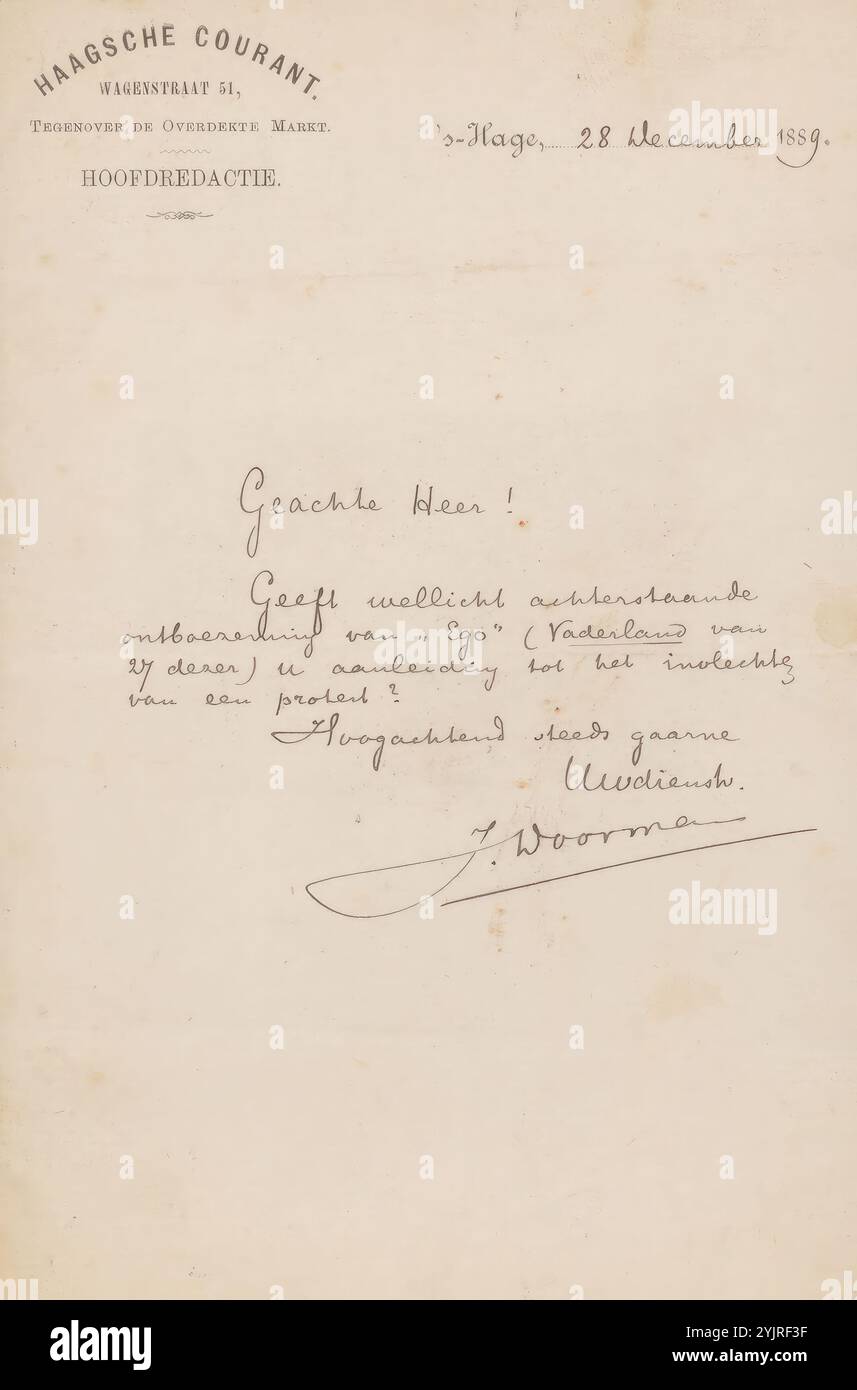 HAAGSCHE COURANT.
WAGENSTRAAT 51,
TEGENOVER DE OVERDEKTE MARKT.
HOOFDREDACTIE.
's-Hage, 28 December 1889.
Geachte Heer !
Geeft wellicht achterstaande
ontboezeming van „Ego" (Vaderland van
27 dezer) u aanleiding tot het
van een protest ?
Hoogachtend steeds gaarne
Uwdienstw.
J. Doorman
alamy
Image ID: 2YJRF3F
www.alamy.com